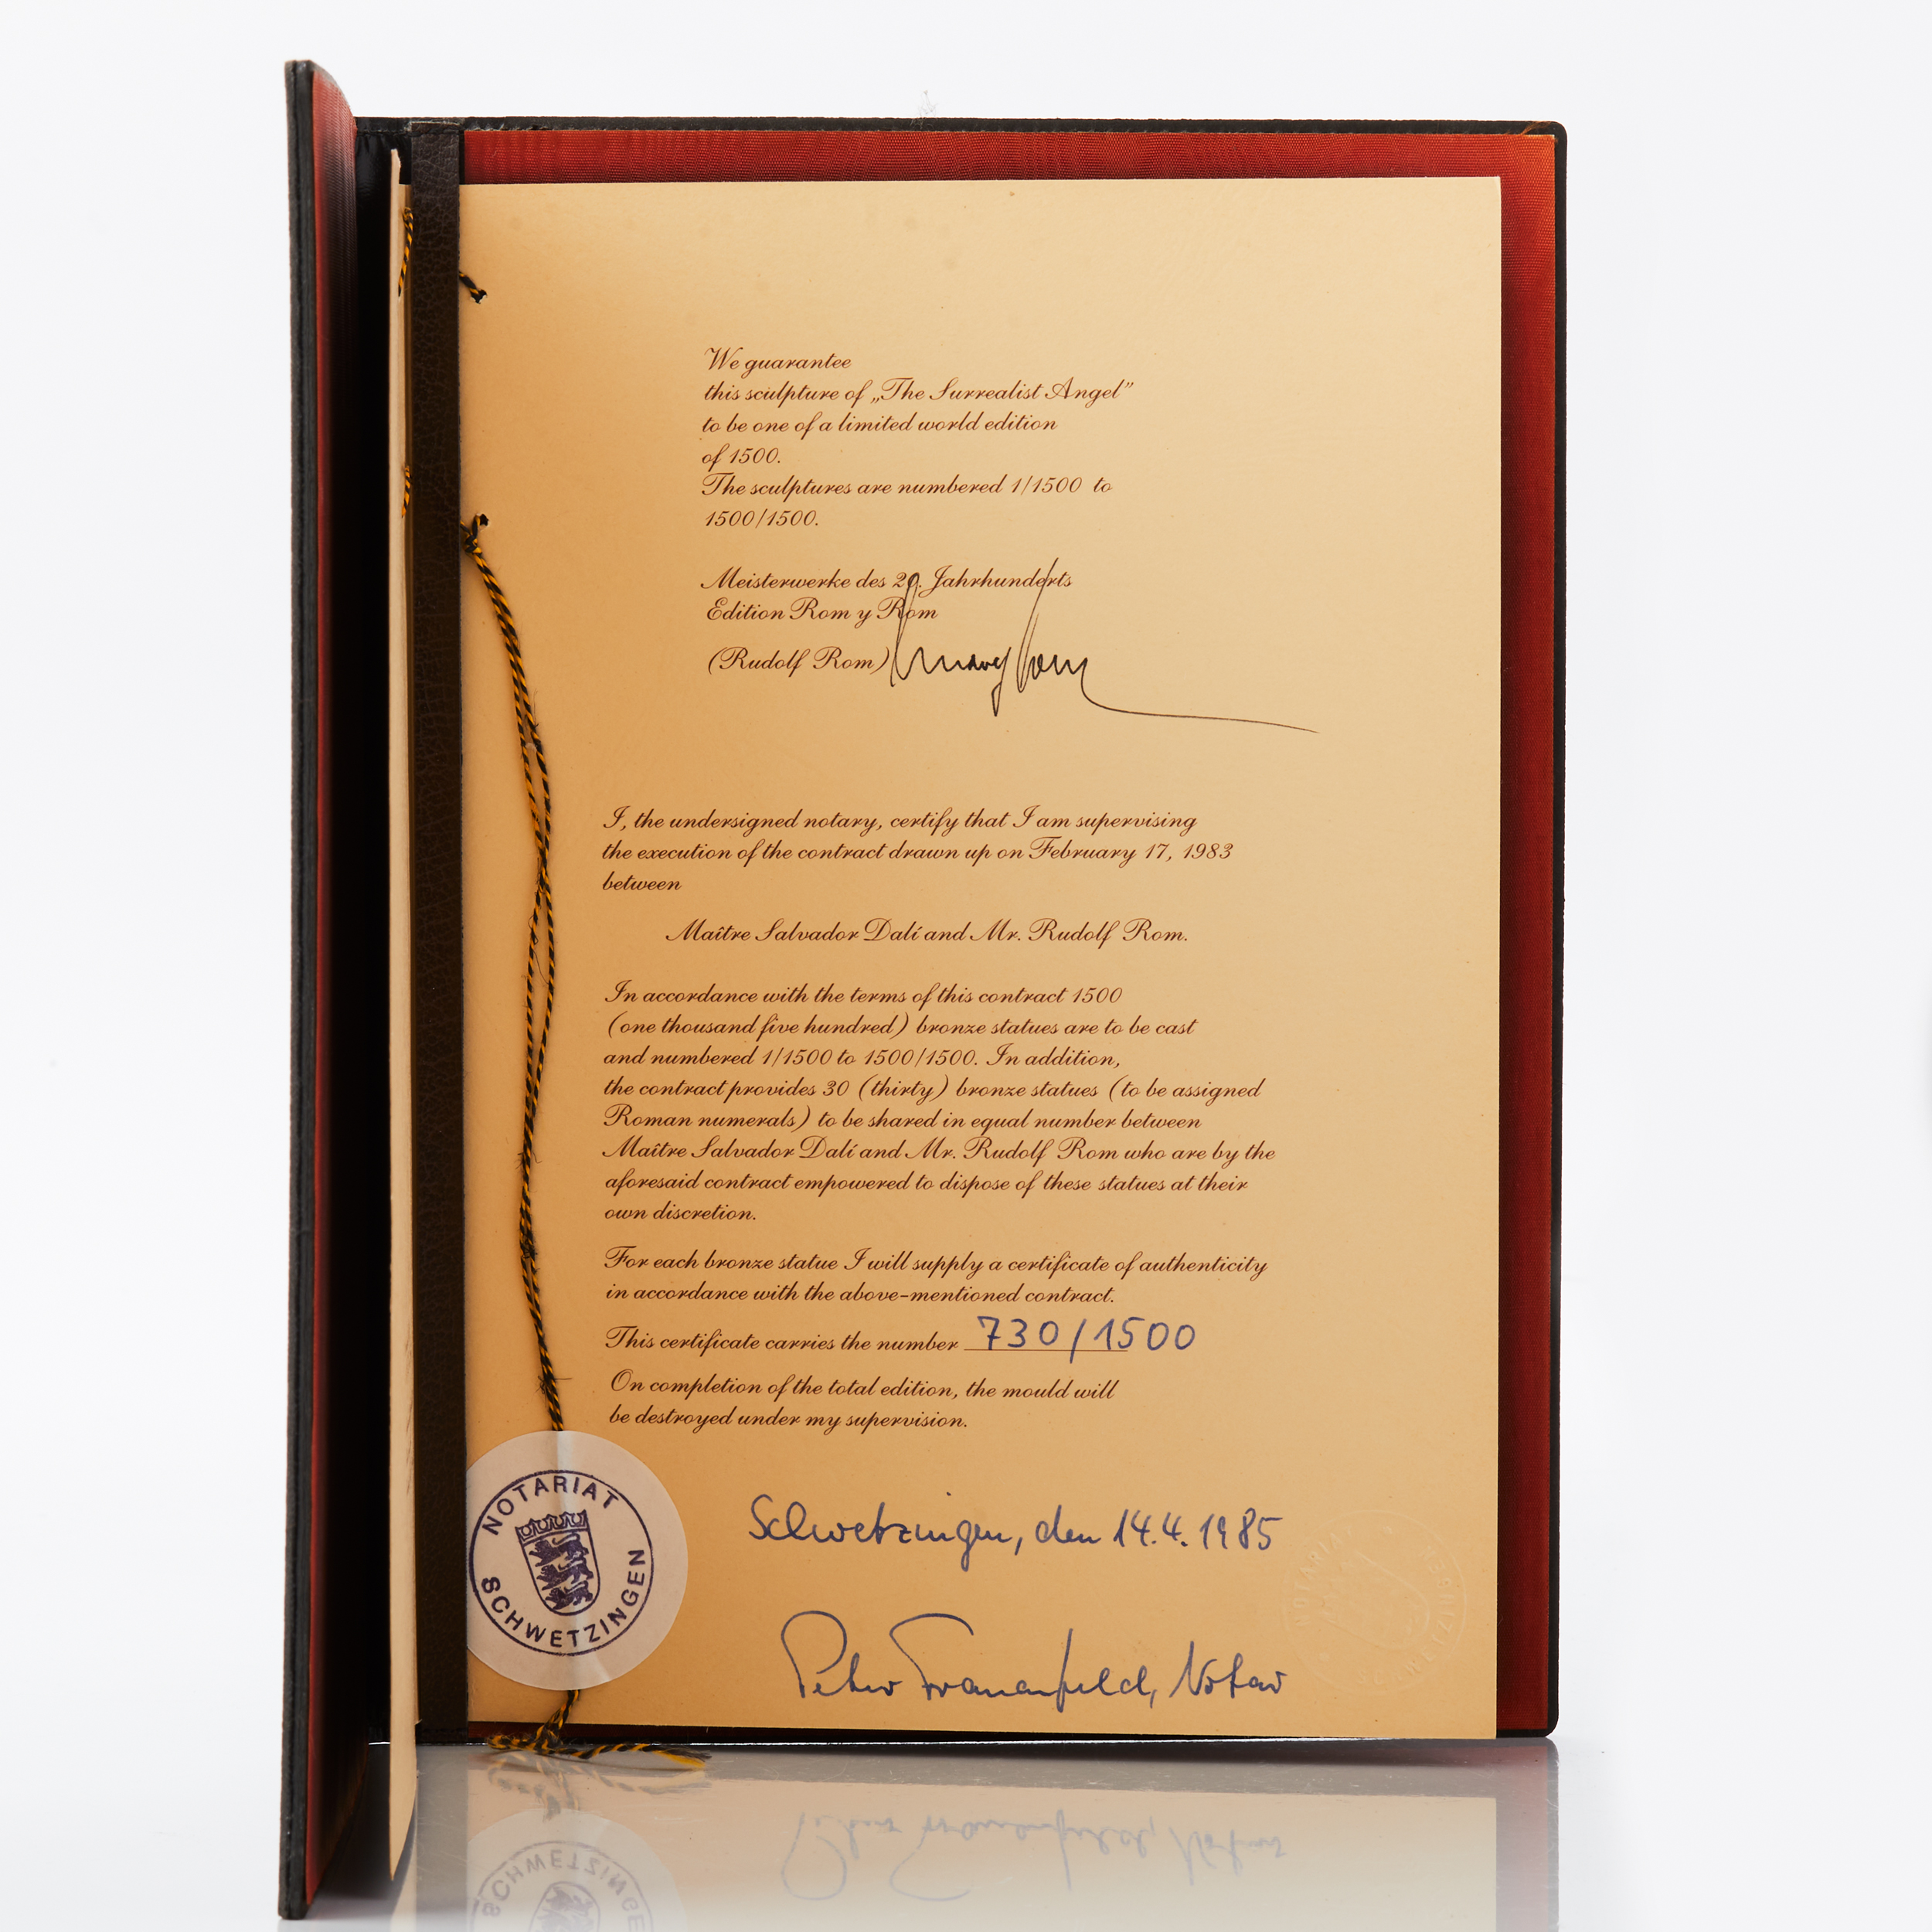 We guarantee
this sculpture of „The Surrealist Angel”
to be one of a limited world edition
of 1500.
The sculptures are numbered 1/1500 to
1500/1500.
Meisterwerke des 20. Jahrhunderts
Edition Rom y Rom
(Rudolf Rom)
I, the undersigned notary, certify that I am supervising
the execution of the contract drawn up on February 17, 1983
between
Maître Salvador Dalí and Mr. Rudolf Rom.
In accordance with the terms of this contract 1500
(one thousand five hundred) bronze statues are to be cast
and numbered 1/1500 to 1500/1500. In addition,
the contract provides 30 (thirty) bronze statues (to be assigned
Roman numerals) to be shared in equal number between
Maître Salvador Dalí and Mr. Rudolf Rom who are by the
aforesaid contract empowered to dispose of these statues at their
own discretion.
For each bronze statue I will supply a certificate of authenticity
in accordance with the above-mentioned contract.
This certificate carries the number 730/1500
On completion of the total edition, the mould will
be destroyed under my supervision.
NOTARIAT
SCHWETZINGEN
Schwetzingen, den 14.4.1985
Peter Frauenfeld, Notar
NOTARIAT
SCHWETZINGEN